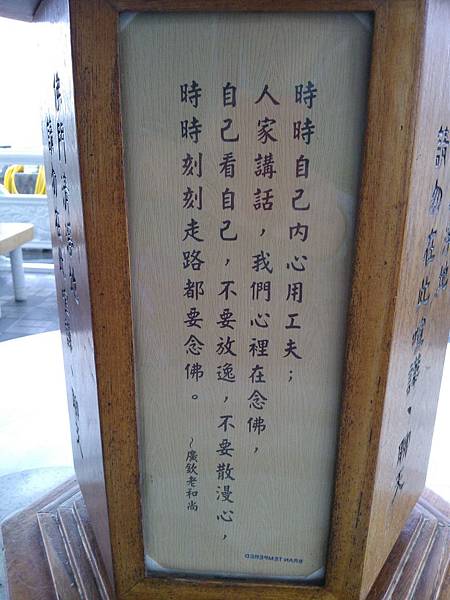 時時自己內心用工夫；
人家講話，我們心裡在念佛，
自己看自己，不要放逸，不要散漫心，
時時刻刻走路都要念佛。
～廣欽老和尚
BRAN TEMPERED
佛門清淨地
請勿在此
請勿在此喧譁、聊天